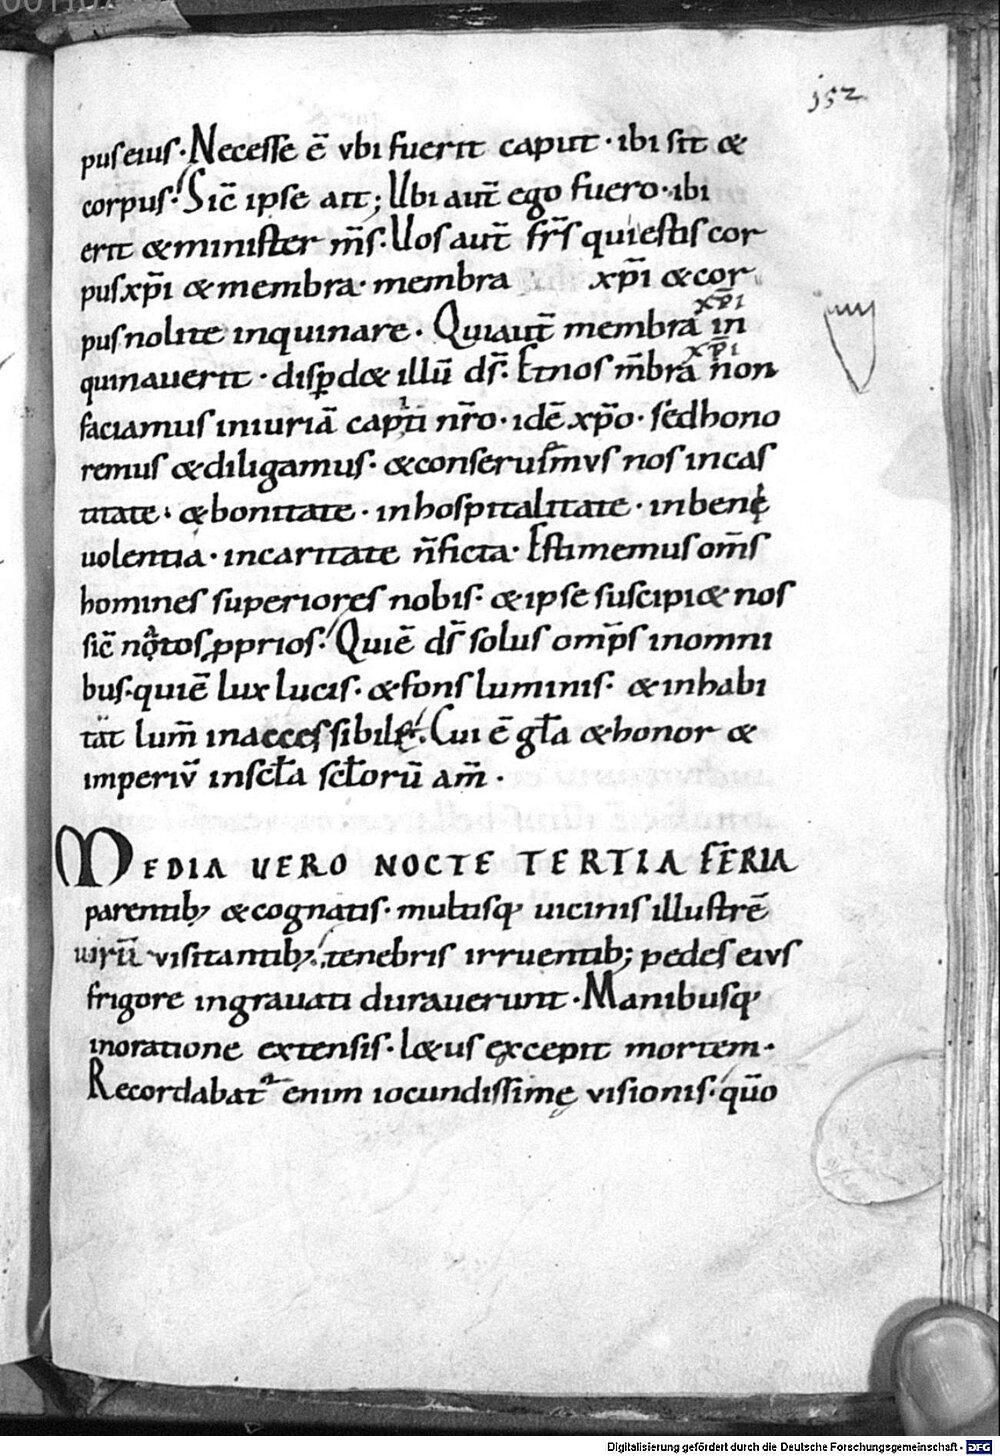 152
puſ eiuſ · Neceſſe ē vbi fuerit caput · ibi ſit &
corpuſ · Sic̄ ipſe ait ; Ubi aut̄ ego fuero · ibi
erit & miniſter m̄ſ · Uoſ aut̄ fr̄ſ qui eſtiſ cor
puſ xp̄i & membra · membra xp̄i & cor
puſ nolite inquinare · Qui aut̄ membra xp̄i in
quinauerit · diſꝑd& illū dſ̄ · Et noſ m̄bra xp̄i non
faciamuſ iniuriā capiti nr̄o · idē xp̄o · ſed hono
remuſ & diligamuſ · & conſeruemvſ noſ in caſ
titate · & bonitate · in hoſpitalitate · in bene
uolentia · in caritate n̄ ficta · Eſtimemuſ om̄ſ
homineſ ſuperioreſ nobiſ · & ipſe ſuſcipi& noſ
ſic̄ ꝓprioſ · Qui ē dſ̄ ſoluſ omp̄ſ in omni
buſ · qui ē lux luciſ · & fonſ luminiſ · & inhabi
tat lum̄ inacceſſibile · Cui ē gl̄a & honor &
imperiv̄ in ſcl̄a ſcl̄orū am̄ ·
MEDIA UERO NOCTE TERTIA FERIA
parentib; & cognatiſ · multiſq; uiciniſ illuſtrē
uirū viſitantib; · tenebriſ irruentib; pedeſ eivſ
frigore ingrauati durauerunt · Manibuſq;
in oratione extenſiſ · l&uſ excepit mortem ·
Recordabat᷑ enim iocundiſſimę viſioniſ · qūo
Digitalisierung gefördert durch die Deutsche Forschungsgemeinschaft - DFG